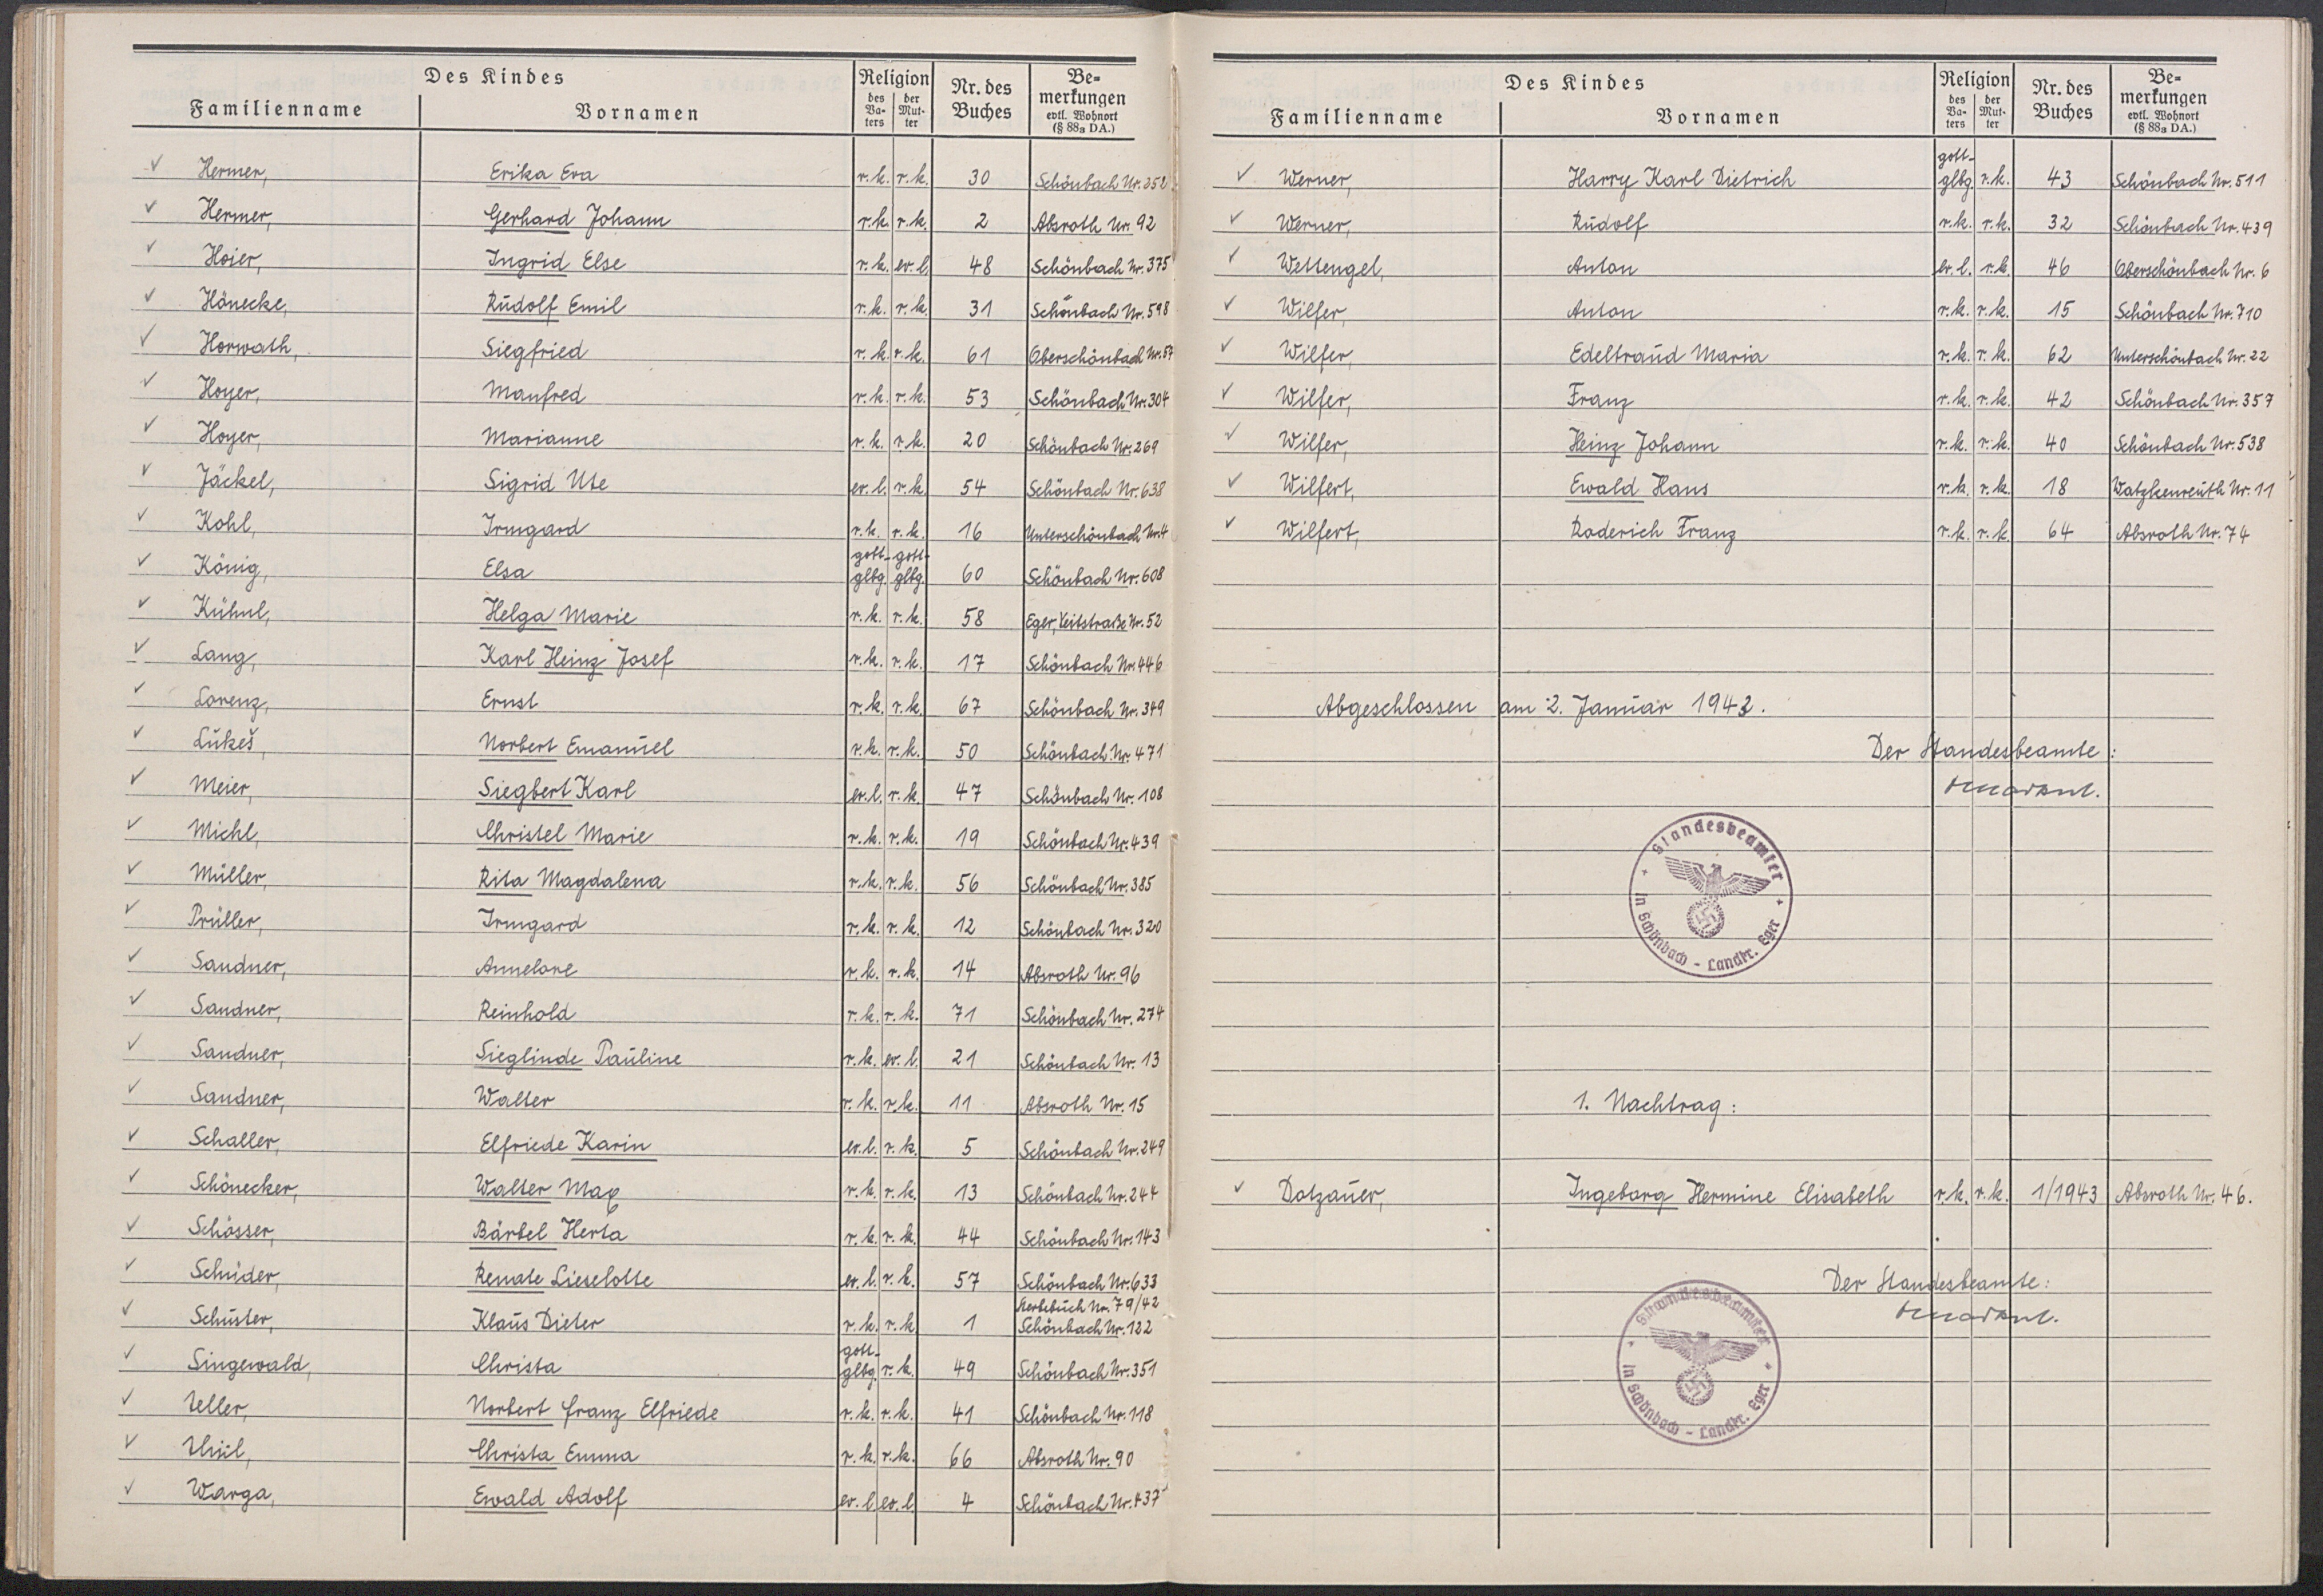 Des Kindes
Religion
Nr. des Buches
Be=
merkungen
evtl. Wohnort
(§ 88a DA.)
Familienname
Vornamen
des Va-ters
der Mut-ter
Hermer, Erika Eva r.k. r.k. 30 Schönbach Nr. 352
Hermer, Gerhard Johann r.k. r.k. 2 Absroth Nr. 92
Hoier, Ingrid Else r.k. ev.l. 48 Schönbach Nr. 375
Hönecke, Rudolf Emil r.k. r.k. 31 Schönbach Nr. 598
Horwath, Siegfried r.k. r.k. 61 Oberschönbach Nr. 57
Hoyer, Manfred r.k. r.k. 53 Schönbach Nr. 304
Hoyer, Marianne r.k. r.k. 20 Schönbach Nr. 269
Jäckel, Sigrid Ute ev.l. r.k. 54 Schönbach Nr. 638
Kohl, Irmgard r.k. r.k. 16 Unterschönbach Nr. 4
König, Elsa gott-glbg. gott-glbg. 60 Schönbach Nr. 608
Kühnl, Helga Marie r.k. r.k. 58 Eger, Veitstraße Nr. 52
Lang, Karl Heinz Josef r.k. r.k. 17 Schönbach Nr. 446
Lorenz, Ernst r.k. r.k. 67 Schönbach Nr. 349
Lukeš, Norbert Emanuel r.k. r.k. 50 Schönbach Nr. 471
Meier, Siegbert Karl ev.l. r.k. 47 Schönbach Nr. 108
Michl, Christel Marie r.k. r.k. 19 Schönbach Nr. 439
Müller, Rita Magdalena r.k. r.k. 56 Schönbach Nr. 385
Prüller, Irmgard r.k. r.k. 12 Schönbach Nr. 320
Sandner, Annelore r.k. r.k. 14 Absroth Nr. 96
Sandner, Reinhold r.k. r.k. 71 Schönbach Nr. 274
Sandner, Sieglinde Pauline r.k. ev.l. 21 Schönbach Nr. 13
Sandner, Walter r.k. r.k. 11 Absroth Nr. 15
Schaller, Elfriede Karin ev.l. r.k. 5 Schönbach Nr. 249
Schönecker, Walter Max r.k. r.k. 13 Schönbach Nr. 244
Schösser, Bärbel Herta r.k. r.k. 44 Schönbach Nr. 143
Schuider, Renate Lieselotte ev.l. r.k. 57 Schönbach Nr. 633
Sterbebuch Nr. 79/42
Schuster, Klaus Dieter r.k. r.k. 1 Schönbach Nr. 122
Singewald, Christa gott-glbg. r.k. 49 Schönbach Nr. 351
Ueller, Norbert Franz Elfriede r.k. r.k. 41 Schönbach Nr. 118
Uhil, Christa Emma r.k. r.k. 66 Absroth Nr. 90
Warga, Ewald Adolf ev.l. ev.l. 4 Schönbach Nr. 437
Des Kindes
Religion
Nr. des Buches
Be=
merkungen
evtl. Wohnort
(§ 88a DA.)
Familienname
Vornamen
des Va-ters
der Mut-ter
Werner, Harry Karl Dietrich gott-glbg. r.k. 43 Schönbach Nr. 511
Werner, Rudolf r.k. r.k. 32 Schönbach Nr. 439
Wettengel, Anton ev.l. r.k. 46 Oberschönbach Nr. 6
Wilfer, Anton r.k. r.k. 15 Schönbach Nr. 710
Wilfer, Edeltraud Maria r.k. r.k. 62 Unterschönbach Nr. 22
Wilfer, Franz r.k. r.k. 42 Schönbach Nr. 357
Wilfer, Heinz Johann r.k. r.k. 40 Schönbach Nr. 538
Wilfert, Ewald Hans r.k. r.k. 18 Watzkenreuth Nr. 11
Wilfert, Roderich Franz r.k. r.k. 64 Absroth Nr. 74
Abgeschlossen am 2. Januar 1943.
Der Standesbeamte:
Standesbeamter
in Schönbach - Landkr. Eger
1. Nachtrag:
Dotzauer, Ingeborg Hermine Elisabeth r.k. r.k. 1/1943 Absroth Nr. 46.
Der Standesbeamte:
Standesbeamter
in Schönbach - Landkr. Eger